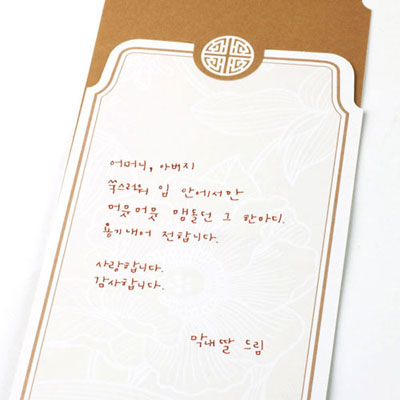 어머니, 아버지
쑥스러워 입 안에서만
머뭇머뭇 맴돌던 그 한마디.
용기내어 전합니다.
사랑합니다.
감사합니다.
막내딸 드림